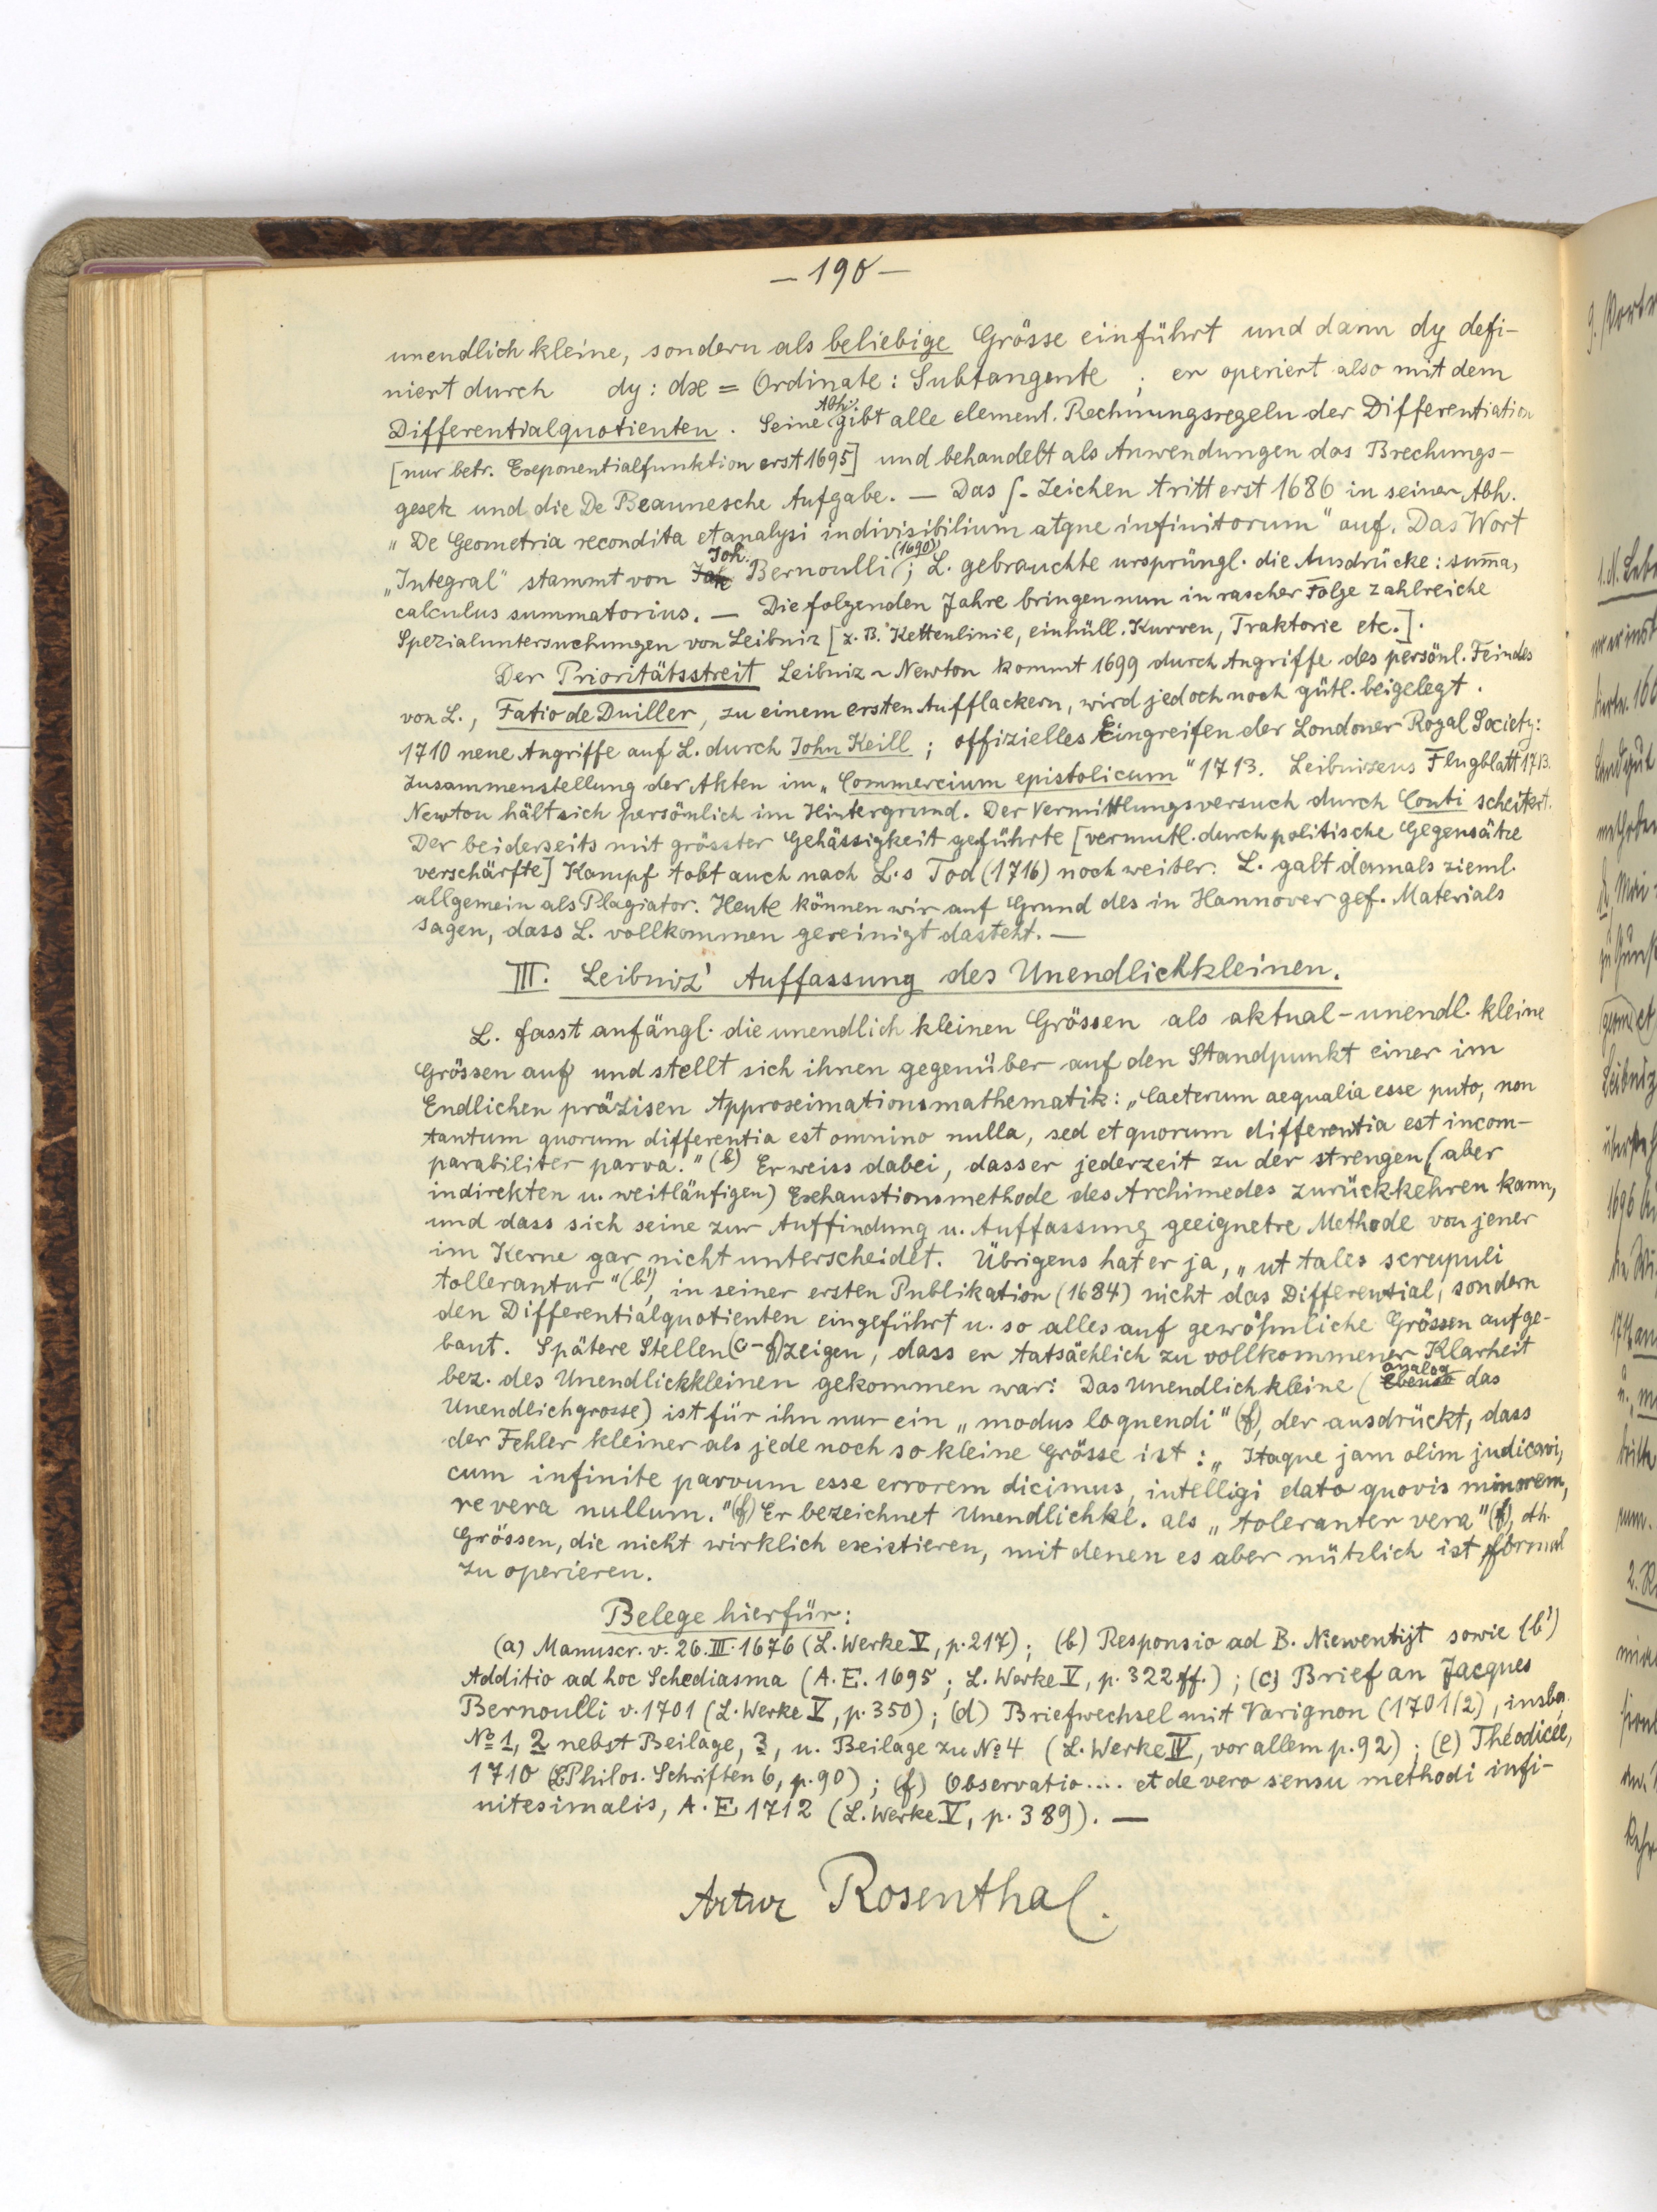 — 190 —
unendlich kleine, sondern als beliebige Grösse einführt und dann dy defi-
niert durch dy : dx = Ordinate : Subtangente ; er operiert also mit dem
Differentialquotienten. Seine Abh. gibt alle element. Rechnungsregeln der Differentiation
[nur betr. Exponentialfunktion erst 1695] und behandelt als Anwendungen das Brechungs-
gesetz und die De Beaunesche Aufgabe. — Das ∫-Zeichen tritt erst 1686 in seiner Abh.
„De Geometria recondita et analysi indivisibilium atque infinitorum" auf. Das Wort
„Integral" stammt von Joh. Bernoulli (1690); L. gebrauchte ursprüngl. die Ausdrücke: sum̄a,
calculus summatorius. — Die folgenden Jahre bringen nun in rascher Folge zahlreiche
Spezialuntersuchungen von Leibniz [z. B. Kettenlinie, einhüll. Kurven, Traktorie etc.].
Der Prioritätsstreit Leibniz ~ Newton kommt 1699 durch Angriffe des persönl. Feindes
von L., Fatio de Duiller, zu einem ersten Aufflackern, wird jedoch noch gütl. beigelegt.
1710 neue Angriffe auf L. durch John Keill ; offizielles Eingreifen der Londoner Royal Society:
Zusammenstellung der Akten im „Commercium epistolicum" 1713. Leibnizens Flugblatt 1713.
Newton hält sich persönlich im Hintergrund. Der Vermittlungsversuch durch Conti scheitert.
Der beiderseits mit grösster Gehässigkeit geführte [vermutl. durch politische Gegensätze
verschärfte] Kampf tobt auch nach L.s Tod (1716) noch weiter. L. galt damals zieml.
allgemein als Plagiator. Heute können wir auf Grund des in Hannover gef. Materials
sagen, dass L. vollkommen gereinigt dasteht. —
III. Leibniz' Auffassung des Unendlichkleinen.
L. fasst anfängl. die unendlich kleinen Grössen als aktual-unendl. kleine
Grössen auf und stellt sich ihnen gegenüber auf den Standpunkt einer im
Endlichen präzisen Approximationsmathematik: „Caeterum aequalia esse puto, non
tantum quorum differentia est omnino nulla, sed et quorum differentia est incom-
parabiliter parva." (b) Er weiss dabei, dass er jederzeit zu der strengen (aber
indirekten u. weitläufigen) Exhaustionsmethode des Archimedes zurückkehren kann,
und dass sich seine zur Auffindung u. Auffassung geeignetre Methode von jener
im Kerne gar nicht unterscheidet. Übrigens hat er ja, „ut tales scrupuli
tollerantur" (b'), in seiner ersten Publikation (1684) nicht das Differential, sondern
den Differentialquotienten eingeführt u. so alles auf gewöhnliche Grössen aufge-
baut. Spätere Stellen (c-f) zeigen, dass er tatsächlich zu vollkommener Klarheit
bez. des Unendlichkleinen gekommen war: Das Unendlichkleine (analog das
Unendlichgrosse) ist für ihn nur ein „modus loquendi" (f), der ausdrückt, dass
der Fehler kleiner als jede noch so kleine Grösse ist : „Itaque jam olim judicavi,
cum infinite parvum esse errorem dicimus, intelligi dato quovis minorem,
revera nullum." (f) Er bezeichnet Unendlichkl. als „toleranter vera" (f), dh.
Grössen, die nicht wirklich existieren, mit denen es aber nützlich ist, formal
zu operieren.
Belege hierfür:
(a) Manuscr. v. 26.III.1676 (L. Werke V, p. 217) ; (b) Responsio ad B. Niewentijt sowie (b')
Additio ad hoc Schediasma (A. E. 1695 ; L. Werke V, p. 322 ff.) ; (c) Brief an Jacques
Bernoulli v. 1701 (L. Werke V, p. 350) ; (d) Briefwechsel mit Varignon (1701/2), insb.
No 1, 2 nebst Beilage, 3, u. Beilage zu No 4 (L. Werke IV, vor allem p. 92) ; (e) Théodicée,
1710 (Philos. Schriften 6, p. 90) ; (f) Observatio .... et de vero sensu methodi infi-
nitesimalis, A. E 1712 (L. Werke V, p. 389). —
Artur Rosenthal.